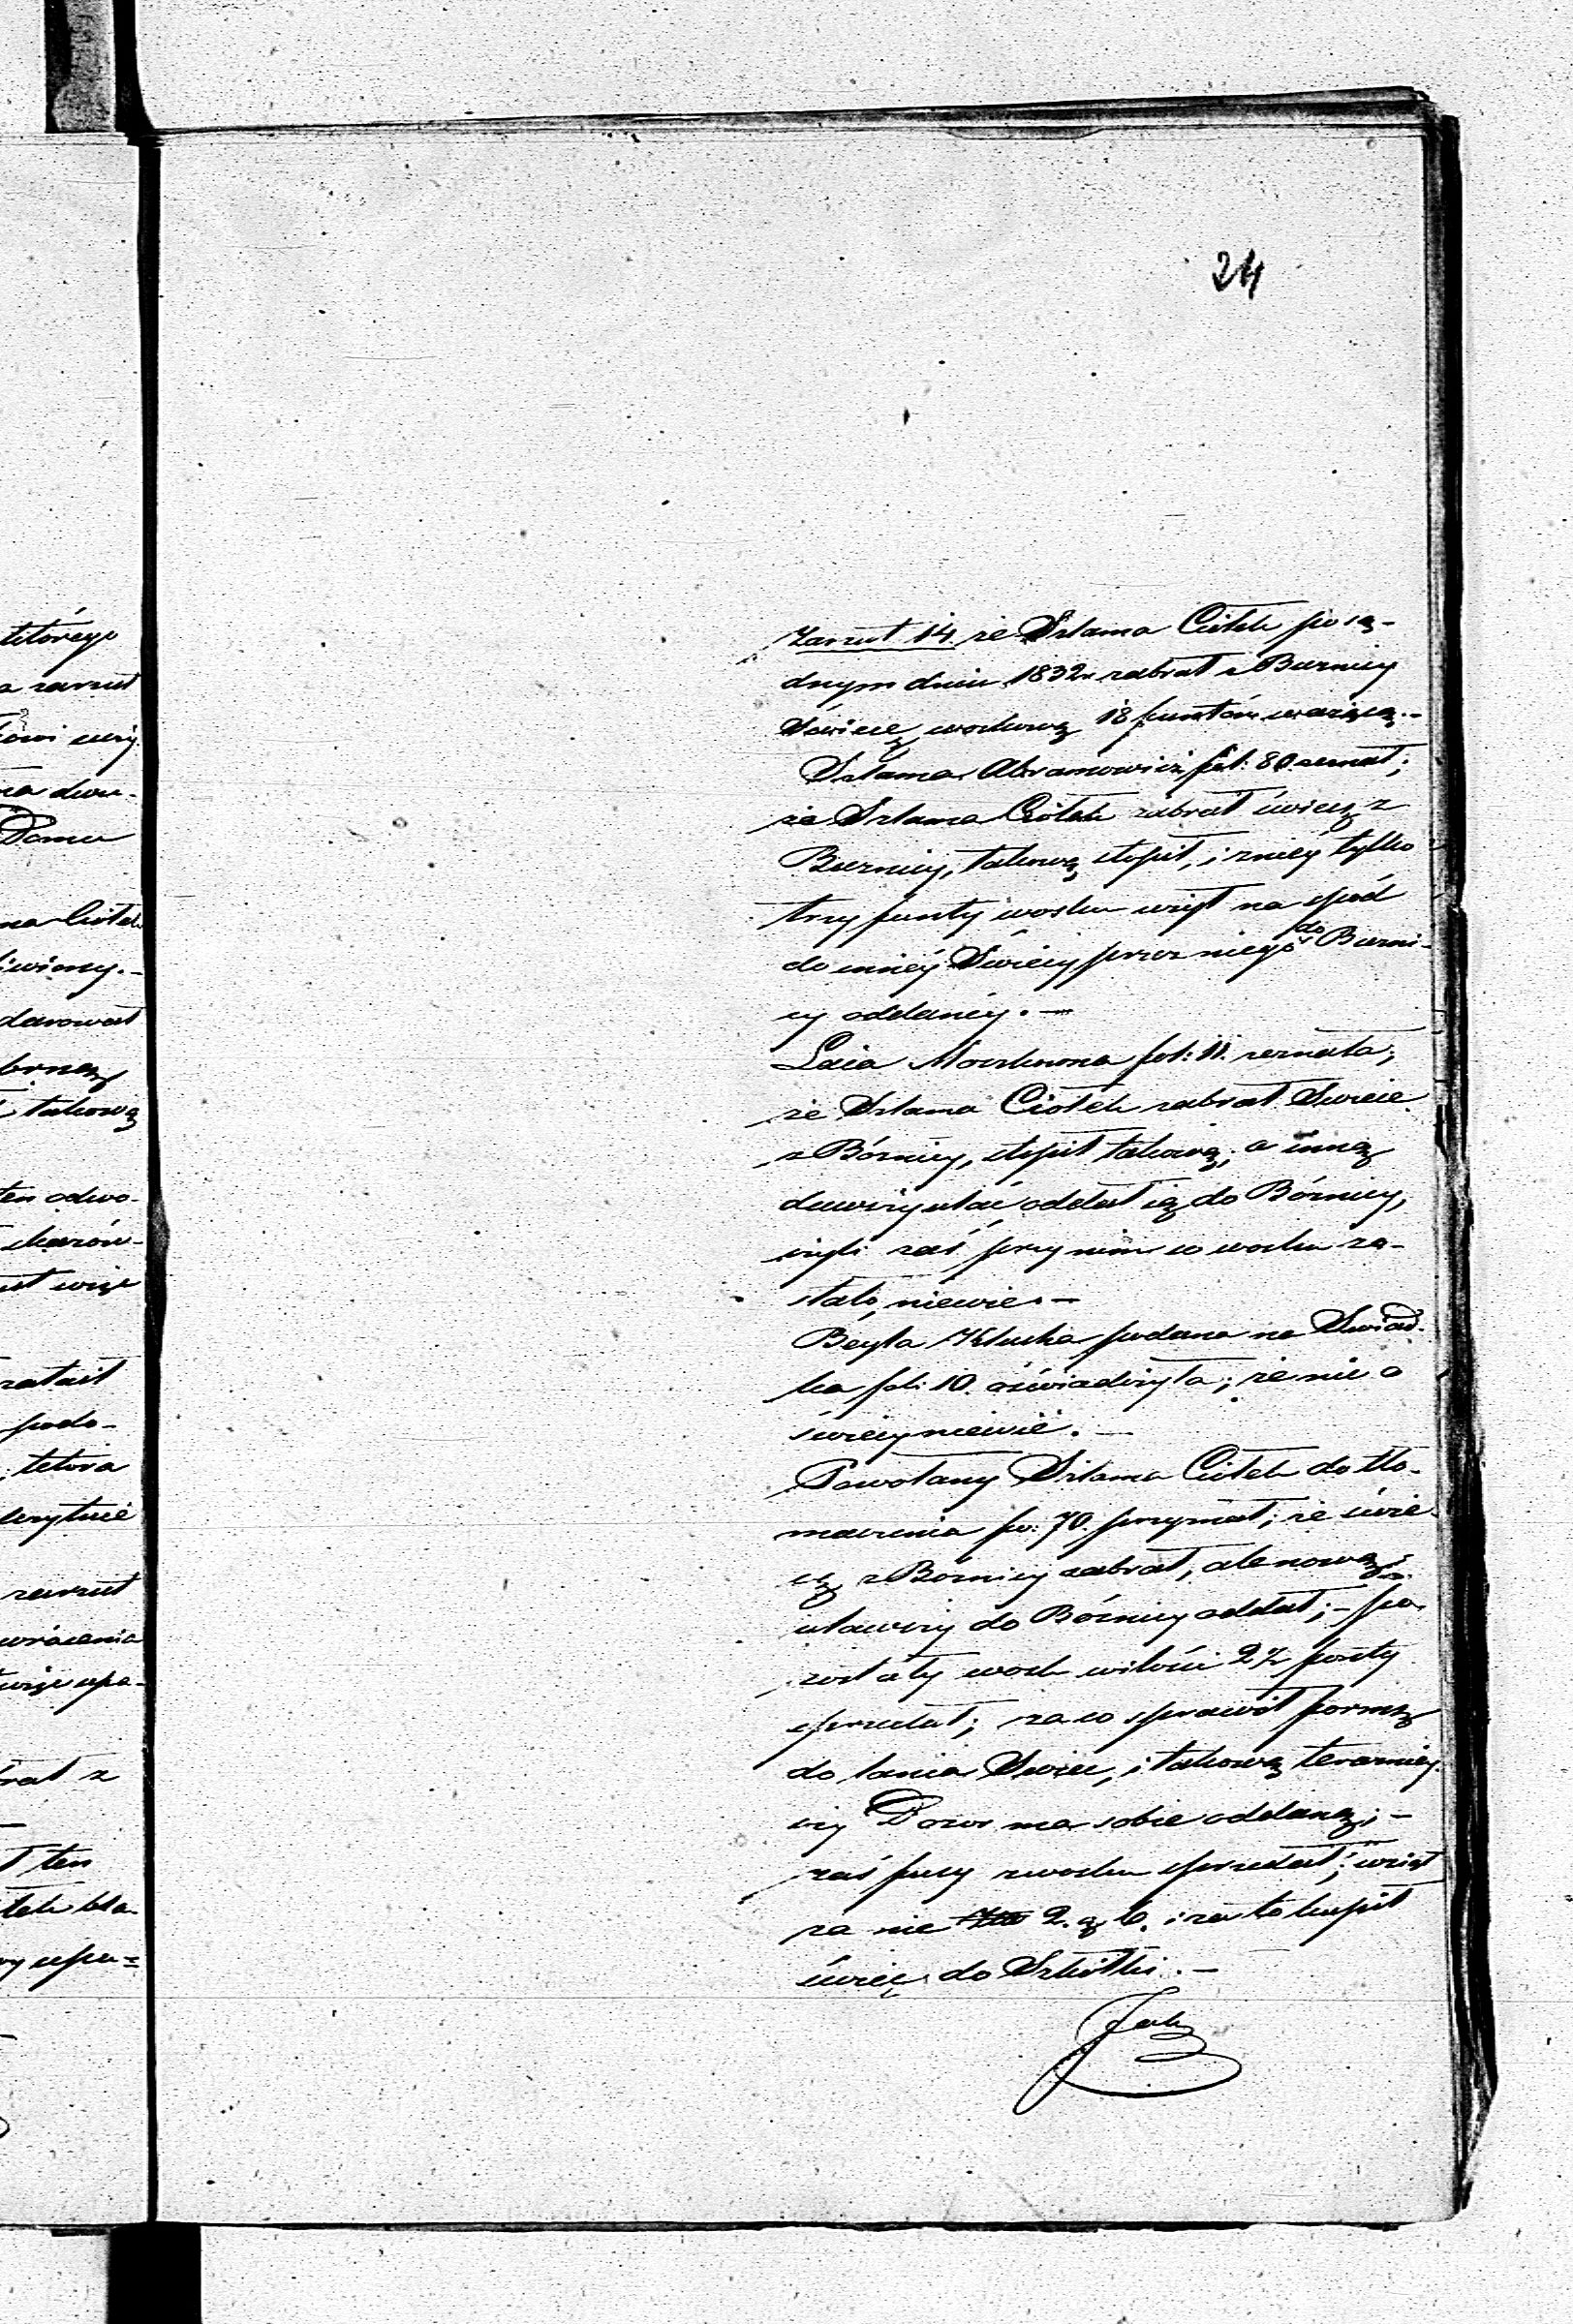 24
Zarzut 14. że Szlama Ciołek po są-
dnym dniu 1832r zabrał z Buznicy
Świecę woskową 18 funtów ważącą.-
Szlama Abramowicz fol: 80. zeznał;
że Szlama Ciołek zabrał świecę z
Buznicy, takową stopił, i zniéy tylko
trzy funty wosku wziął na spód
do innéy Świecy przez niego do Buzni-
cy oddanéy. -
Laia Moszkowna fol: 11. zeznała;
że Szlama Ciołek zabrał Swiece
z Bóznicy, stopił takową; a inną
dawszy ulać oddał ią do Bóznicy,
czyli zaś przy nim co wosku zo-
stało, niewie. -
Beyla Klucka podana na Swiad-
ka fol: 10. oświadczyła; że nic o
świecy niewie. -
Powołany Szlama Ciołek do tło-
maczenia fo: 70. przyznał; że świe-
cę z Bóznicy zabrał, ale nową
ulawszy do Bóznicy oddał; - po
zostały wosk wilości 2 1/2 funty
sprzedał; za co sprawił formę
do lania Swiec, i takową teraźniey-
szy Dozor ma sobie oddaną; -
zaś fusy zwosku sprzedał; wziął
za nie 2. g 6. i za to kupił
świec do Szkółki. -
którego
zarzut
Domu
Ciołek
darował
takową
ten odwo-
więc
zataił
podo-
która
zarzut
wrócenia
ten